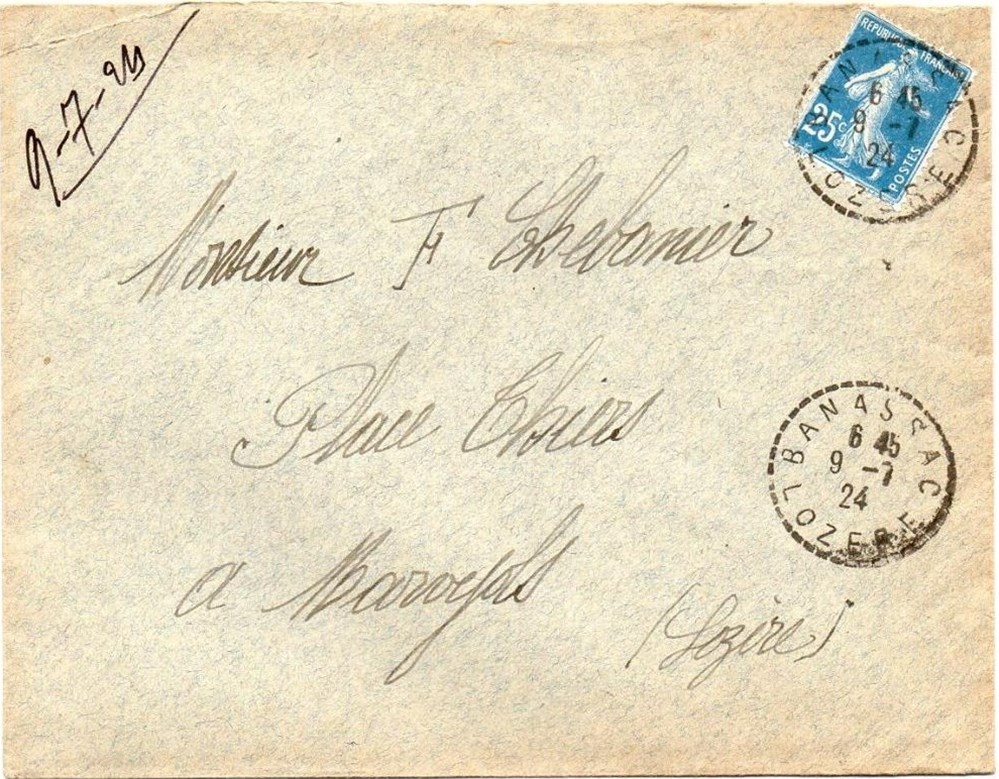 9-7-24
REPUBLIQUE FRANÇAISE
25c
POSTES
BANASSAC
6 45
9 -7
24
LOZERE
Monsieur F Chevanier
Place Thiers
BANASSAC
6 45
9 -7
24
LOZERE
a Marvejols
(Lozère)